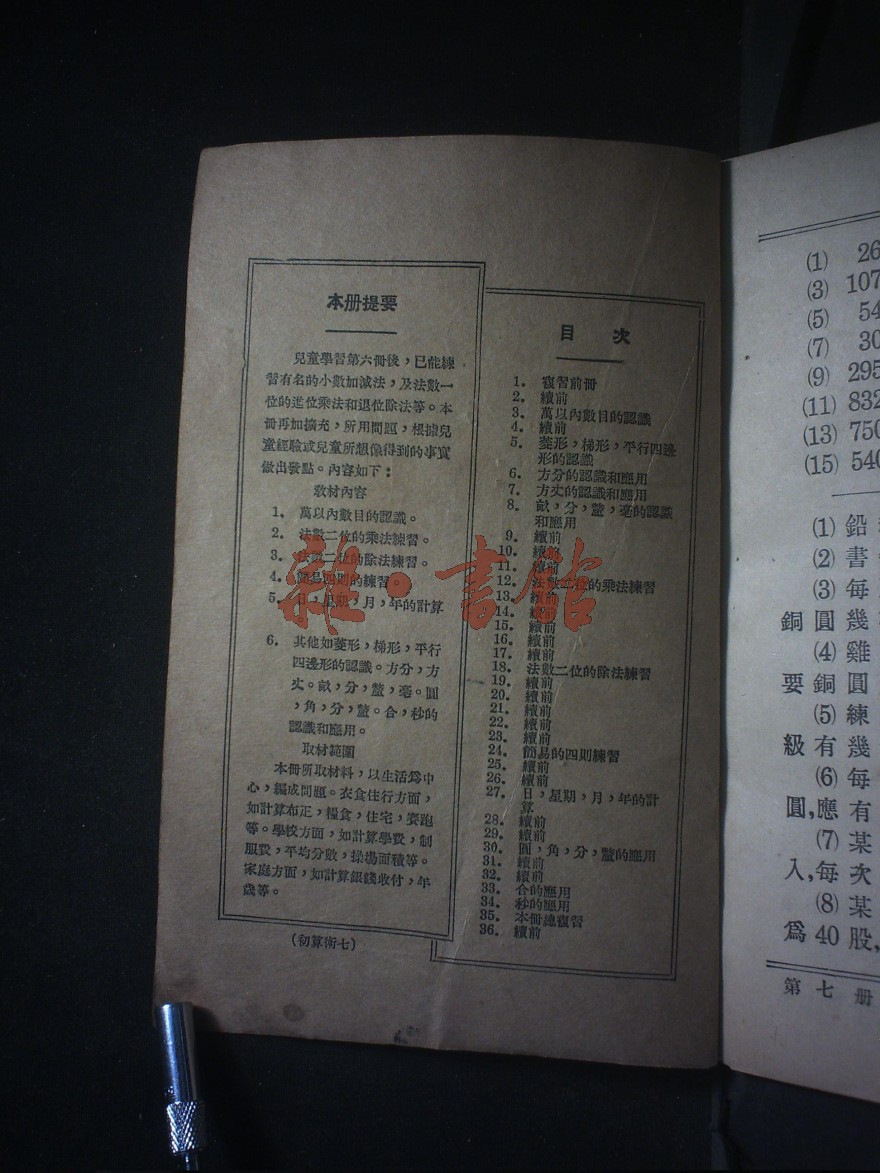 本册提要
兒童學習第六冊後，已能練
習有名的小數加減法，及法數一
位的進位乘法和退位除法等。本
冊再加擴充，所用問題，根據兒
童經驗或兒童所想像得到的事實
做出發點。內容如下：
教材內容
1. 萬以內數目的認識。
2. 法數二位的乘法練習。
3. 法數二位的除法練習。
4. 簡易四則的練習。
5. 日，星期，月，年的計算
6. 其他如菱形，梯形，平行
四邊形的認識。方分，方
丈。畝，分，釐，毫。圓
，角，分，釐。合，秒的
認識和應用。
取材範圍
本冊所取材料，以生活爲中
心，編成問題。衣食住行方面，
如計算布疋，糧食，住宅，賽跑
等。學校方面，如計算學費，制
服費，平均分數，操場面積等。
家庭方面，如計算銀錢收付，年
歲等。
(初算術七)
目 次
1. 復習前冊
2. 續前
3. 萬以內數目的認識
4. 續前
5. 菱形，梯形，平行四邊
形的認識
6. 方分的認識和應用
7. 方丈的認識和應用
8. 畝，分，釐，毫的認識
和應用
9. 續前
10. 續前
11. 續前
12. 法數二位的乘法練習
13. 續前
14. 續前
15. 續前
16. 續前
17. 續前
18. 法數二位的除法練習
19. 續前
20. 續前
21. 續前
22. 續前
23. 續前
24. 簡易的四則練習
25. 續前
26. 續前
27. 日，星期，月，年的計
算
28. 續前
29. 續前
30. 圓，角，分，釐的應用
31. 續前
32. 續前
33. 合的應用
34. 秒的應用
35. 本冊總復習
36. 續前
雜·書館
(1) 26
(3) 107
(5) 54
(7) 30
(9) 295
(11) 832
(13) 750
(15) 540
(1) 鉛
(2) 書
(3) 每
銅圓幾
(4) 雞
要銅圓
(5) 練
級有幾
(6) 每
圓，應有
(7) 某
入，每次
(8) 某
爲40股，
第七册